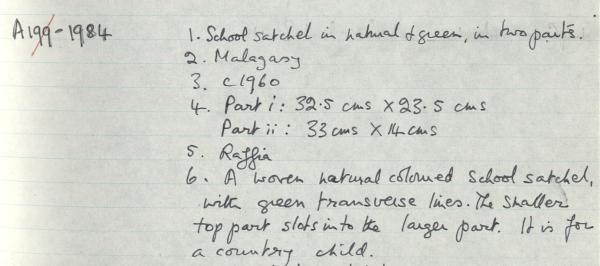 A199-1984
1. School satchel in natural & green, in two parts.
2. Malagasy
3. c1960
4. Part i: 32.5 cms X 23.5 cms
Part ii: 33 cms X 14 cms
5. Raffia
6. A woven natural coloured School satchel,
with green transverse lines. The smaller
top part slots into the larger part. It is for
a country child.